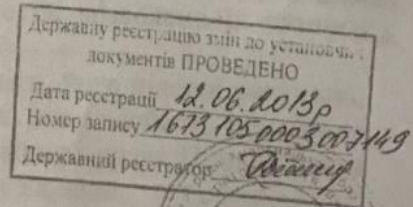 Державну реєстрацію змін до установчи
документів ПРОВЕДЕНО
Дата реєстрації 12.06.2013р
Номер запису 16131050003007149
Державний реєстратор